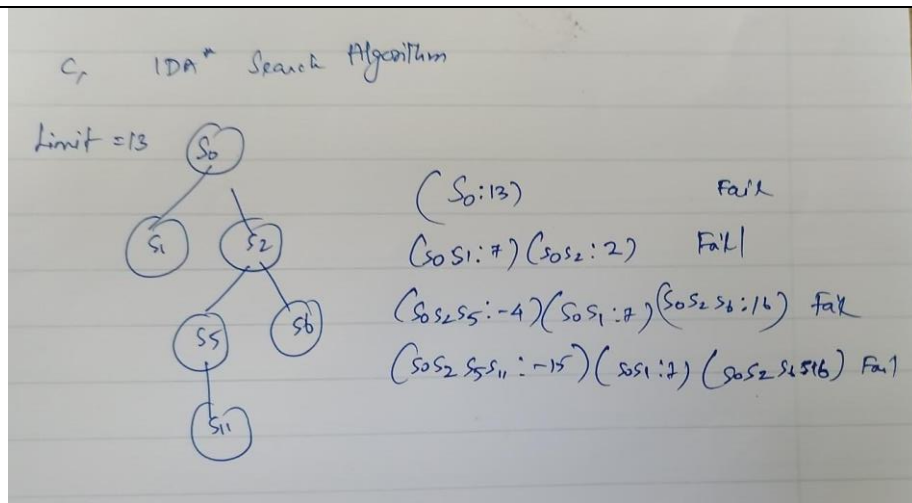 C, IDA* Search Algorithm
Limit = 13
S0
S1
S2
S5
S6
S11
(S0:13) Fail
(S0S1:7) (S0S2:2) Fail
(S0S2S5:-4) (S0S1:7) (S0S2S6:16) Fail
(S0S2S5S11:-15) (S0S1:7) (S0S2 Fail